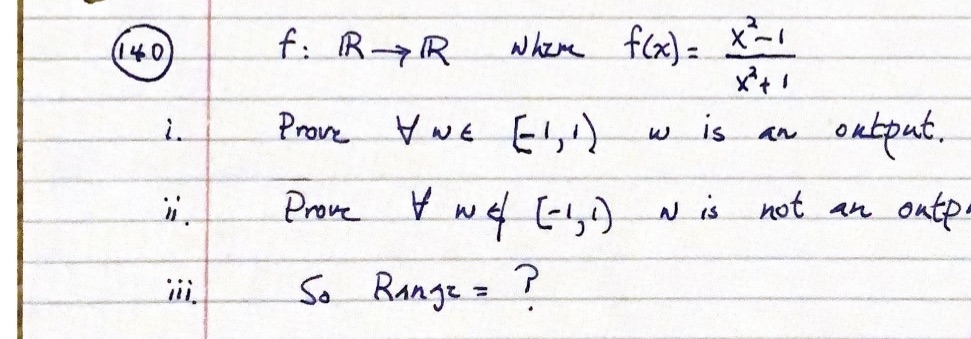 140 f: ℝ → ℝ where f(x) = (x²-1)/(x²+1)
i. Prove ∀ w ∈ [-1,1) w is an output.
ii. Prove ∀ w ∉ [-1,1) w is not an outp
iii. So Range = ?